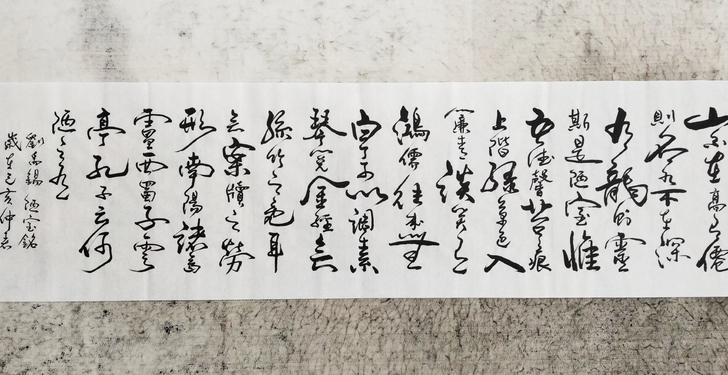 山不在高有仙
則名水不在深
有龍則靈
斯是陋室惟
吾德馨苔痕
上階綠草色入
簾青談笑有
鴻儒往來無
白丁可以調素
琴閱金經無
絲竹之亂耳
無案牘之勞
形南陽諸葛
廬西蜀子雲
亭孔子云何
陋之有
劉禹錫陋室銘
歲在己亥仲